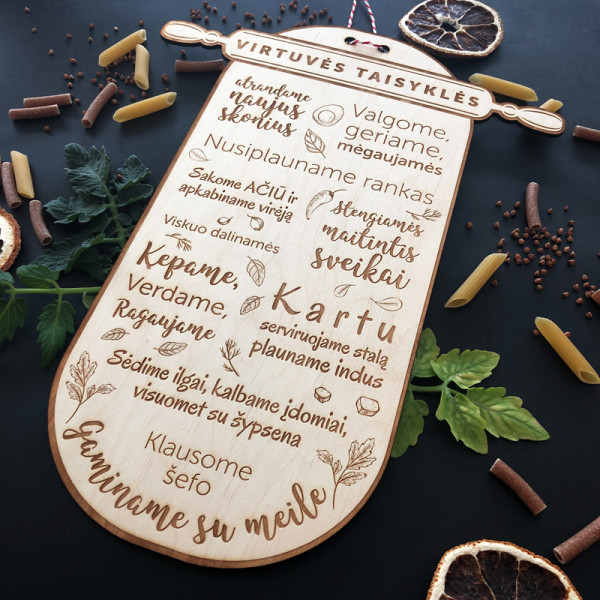 VIRTUVĖS TAISYKLĖS
atrandame
naujus
skonius
Valgome,
geriame,
mėgaujamės
Nusiplauname rankas
Sakome AČIŪ ir
apkabiname virėją
Stengiamės
maitintis
sveikai
Viskuo dalinamės
Kepame,
Verdame,
Ragaujame
Kartu
serviruojame stalą
plauname indus
Sėdime ilgai, kalbame įdomiai,
visuomet su šypsena
Klausome
šefo
Gaminame su meile